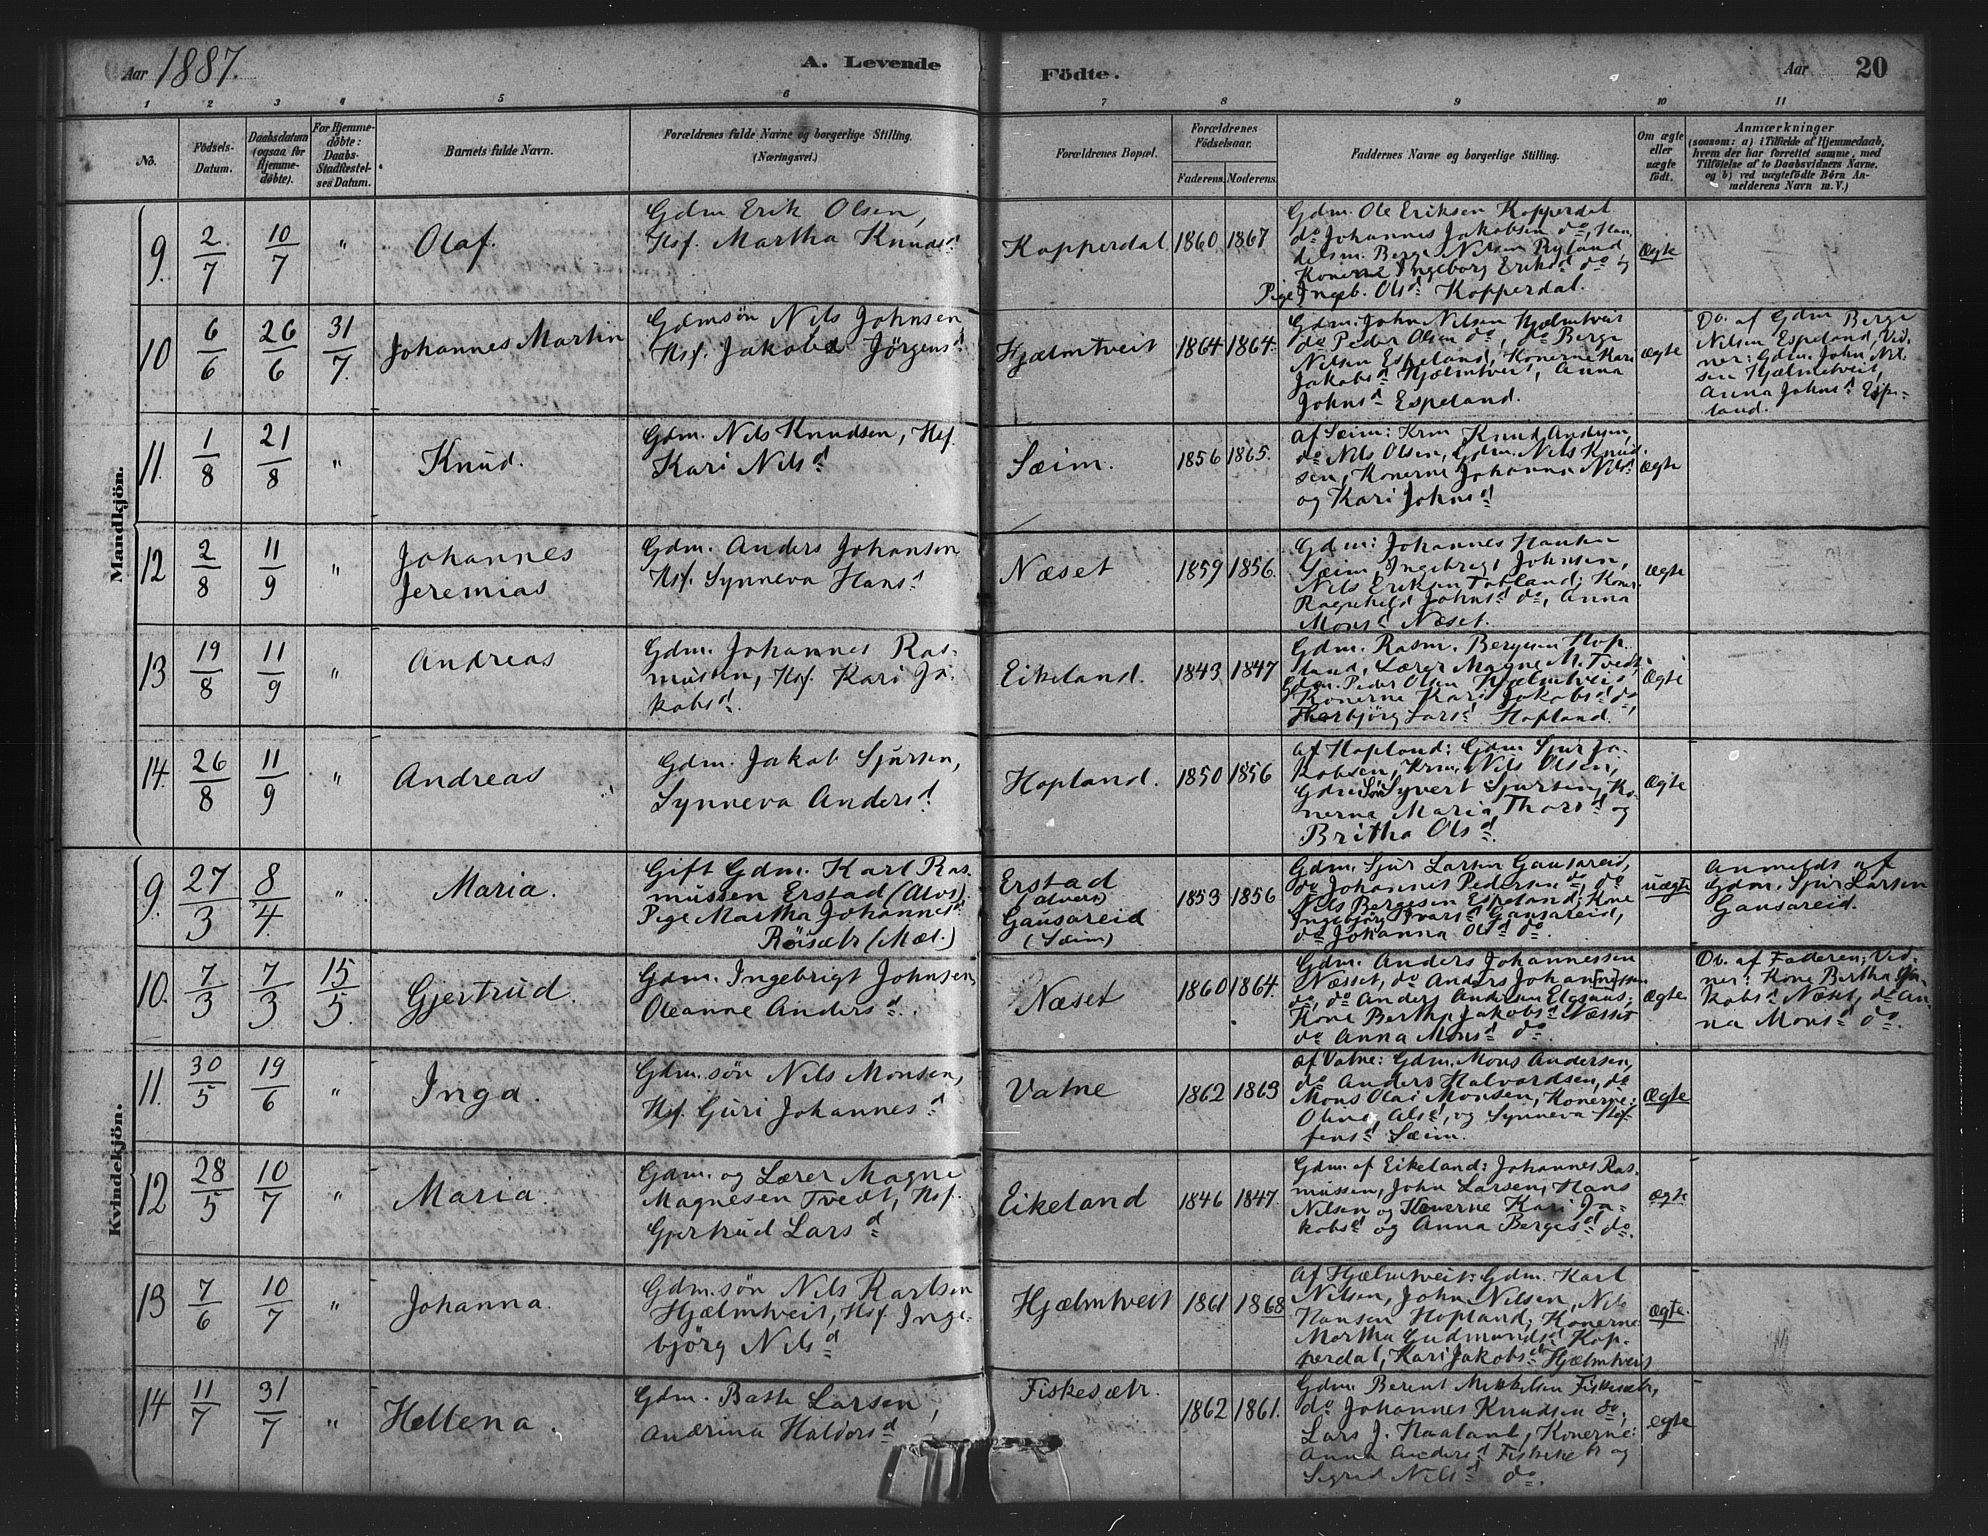 Aar 1887. A. Levende Födte. Aar 20
1 2 3 4 5 6 7 8 9 10 11
No. Fødsels-Datum. Daabsdatum (ogsaa for Hjemme-døbte). For Hjemme-døbte: Daabs-Stadfæstel-ses Datum. Barnets fulde Navn. Forældrenes fulde Navne og borgerlige Stilling. (Næringsvei.) Forældrenes Bopæl. Forældrenes Fødselsaar. Faderens. Moderens. Faddernes Navne og borgerlige Stilling. Om ægte eller uægte født. Anmærkninger (saasom: a) i Tilfælde af Hjemmedaab, hvem der har forrettet samme, med Tilføielse af to Daabsvidners Navne, og b) ved uægtefødte Børn An-melderens Navn m. V.)
Mandkjön.
9. 2/7 10/7 " Olaf.
Gdm. Erik Olsen,
Hsf. Martha Knudsd
Kopperdal 1860 1867
Gdm. Ole Eriksen Kopperdal
do Johannes Jakobsen do, Han
delsm. Berge Nilsen Ryland
Konerne Ingeborg Eriksd do og
Pige Ingeb. Olsd Kopperdal.
Ægte
10 6/6 26/6 31/7. Johannes Martin
Gdmsøn Nils Johnsen
Hsf. Jakoba Jörgensd
Hjælmtveit 1864 1864.
Gdm. John Nilsen Hjelmtveit
do Peder Olsen do, do Berge
Nilsen Espeland, Konerne Kari
Jakobsd Hjælmtveit, Anna
Johnsd Espeland.
ægte
Do. af Gdm Berge
Nilsen Espeland, Vid-
ner: Gdm. John Nil
sen Hjælmtveit,
Anna Johnsd Espe-
land.
11. 1/8 21/8 " Knud.
Gdm. Nils Knudsen, Hsf.
Kari Nilsd
Sæim. 1856 1865.
af Sæim: Krm Knud Andersen,
do Nils Olsen, Gdm. Nils Knud
sen, Konerne Johanna Nilsd
og Kari Johnsd
ægte
12 2/8 11/9 " Johannes
Jeremias
Gdm. Anders Johansen
Hsf. Synneva Hansd
Næset 1859 1856.
Gdm: Johannes Hansen
Sæim, Ingebrigt Johnsen,
Nils Eriksen Totland; Koner
Ragnhild Johnsd do, Anna
Monsd Næset.
ægte
13 19/8 11/9 " Andreas
Gdm. Johannes Ras-
mussen, Hsf. Kari Ja-
kobsd.
Eikeland. 1843 1847
Gdm. Rasm. Bergesen Hop
land, Lærer Magne M. Tvedt
Gdm. Peder Olsen Hjælmtveit,
Konerne Kari Jakobsd do,
Thorbjörg Larsd Hopland.
Ægte
14. 26/8 11/9 " Andreas
Gdm. Jakob Sjursen,
Synneva Andersd.
Hopland. 1850 1856
af Hopland: Gdm Sjur Ja-
kobsen, Krm. Nils Olsen,
Gdm Søn Syvert Sjursen, Ko-
nerne Maria Thorsd og
Britha Olsd
Ægte
Kvindekjön.
9. 27/3 8/4. " Maria.
Gift Gdm. Karl Ras
mussen Erstad (Alvs)
Pige Martha Johannesd
Röisætr (Mæl.)
Erstad
(Alvers)
Gausareid
(Sæim)
1853 1856
Gdm. Sjur Larsen Gausareid,
do Johannes Pedersen do, do
Nils Bergesen Espeland; Kone
Ingebjörg Ivarsd Gausareid,
do Johanna Olsd do.
uægte
Anmeldt af
Gdm. Sjur Larsen
Gausareid.
10. 7/3 7/3 15/5. Gjertrud.
Gdm. Ingebrigt Johnsen
Oleanne Andersd.
Næset 1860 1864.
Gdm. Anders Johannessen
Næsset, do Anders Johannessen
do, do Anders Andersen
Kone Bertha Jakobsd Næsset
do Anna Monsd do.
Ægte
Db. af Faderen; Vid
ner: Kone Bertha Ja-
kobsd Næset, do An
na Monsd do.
11. 30/5 19/6 " Inga.
Gdm.søn Nils Monsen,
Hsf. Guri Johannesd
Vatne 1862 1863
af Vatne: Gdm. Mons Andersen,
do Anders Halvardsen, do
Mons Olai Monsen, Konerne:
Olina Olsd, og Synneva Stef
fensd Sæim.
Ægte
12 28/5 10/7 " Maria.
Gdm. og Lærer Magne
Magnesen Tvedt, Hsf.
Gjertrud Larsd
Eikeland 1846 1847.
Gdm. af Eikeland: Johannes Ras-
mussen, John Larsen, Hans
Nilsen og Konerne Kari Ja-
kobsd og Anna Bergesd do.
ægte
13 7/6 10/7 " Johanna.
Gdm.søn Nils Karlsen
Hjælmtveit, Hsf. Inge-
björg Nilsd
Hjælmtveit 1861 1868
af Hjælmtveit: Gdm. Karl
Nilsen, John Nilsen, Nils
Hansen Hopland; Konerne
Martha Gudmundsd Kop-
perdal, Kari Jakobsd Hjælmtveit
ægte.
14 11/7 31/7 " Hellena.
Gdm. Batte Larsen,
Andrina Haldorsd
Fiskesætr. 1862 1861.
Gdm. Berent Mikkelsen Fiskesætr,
do Johannes Knudsen do,
Lars J. Haaland, Konerne:
Anna Andersd Fiskesetr og
Sigrid Nilsd do.
Ægte